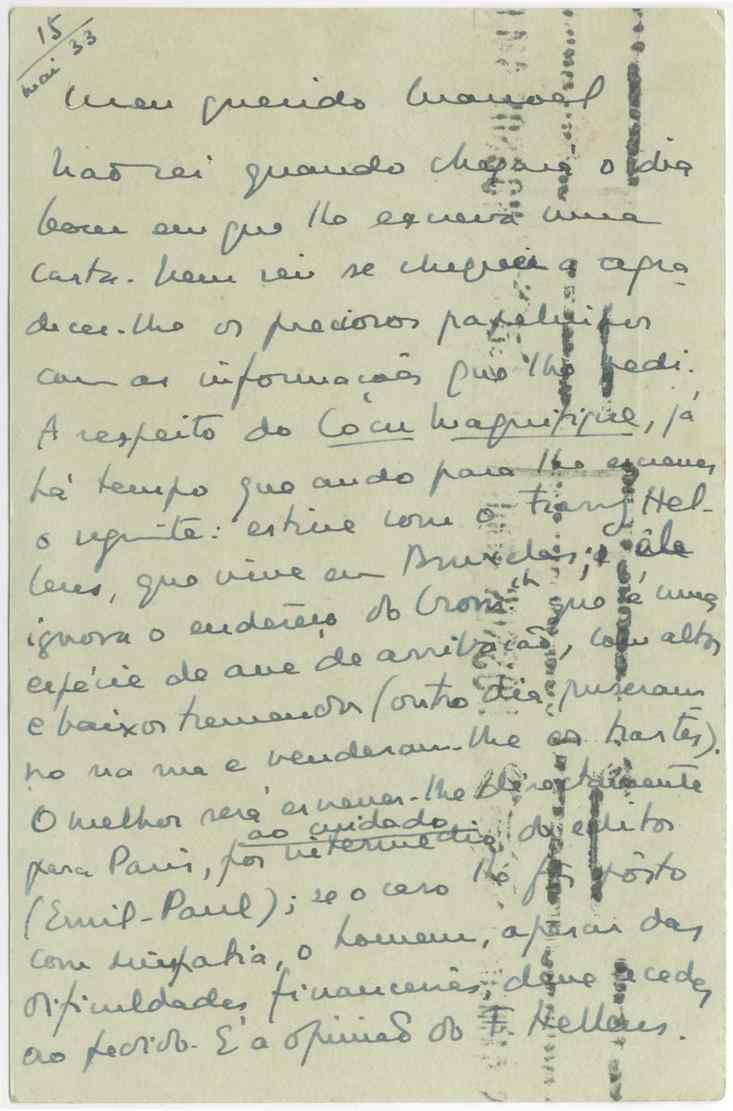 15
mai 33
Meu querido Manoel
Não sei quando chegará o dia
bom em que lhe escreva uma
carta. Nem sei se cheguei a agra-
decer-lhe os preciosos papelinhos
com as informações que lhe pedi.
A respeito do Cocu Magnifique, já
há tempo que ando para lhe escrever
o seguinte: estive com o Franz Hel-
lens, que vive em Bruxelas; êle
ignora o endereço do Crom que é uma
espécie de ave de arribação, com altos
e baixos tremendos (outro dia puseram-
no na rua e venderam-lhe os trastes).
O melhor será escrever-lhe directamente
para Paris, por intermédio do editor
ao cuidado
(Emil-Paul); se o caso lhe fôr pôsto
com simpatia, o homem, apesar das
dificuldades financeiras, deve aceder
ao pedido. É a opinião do F. Hellens.